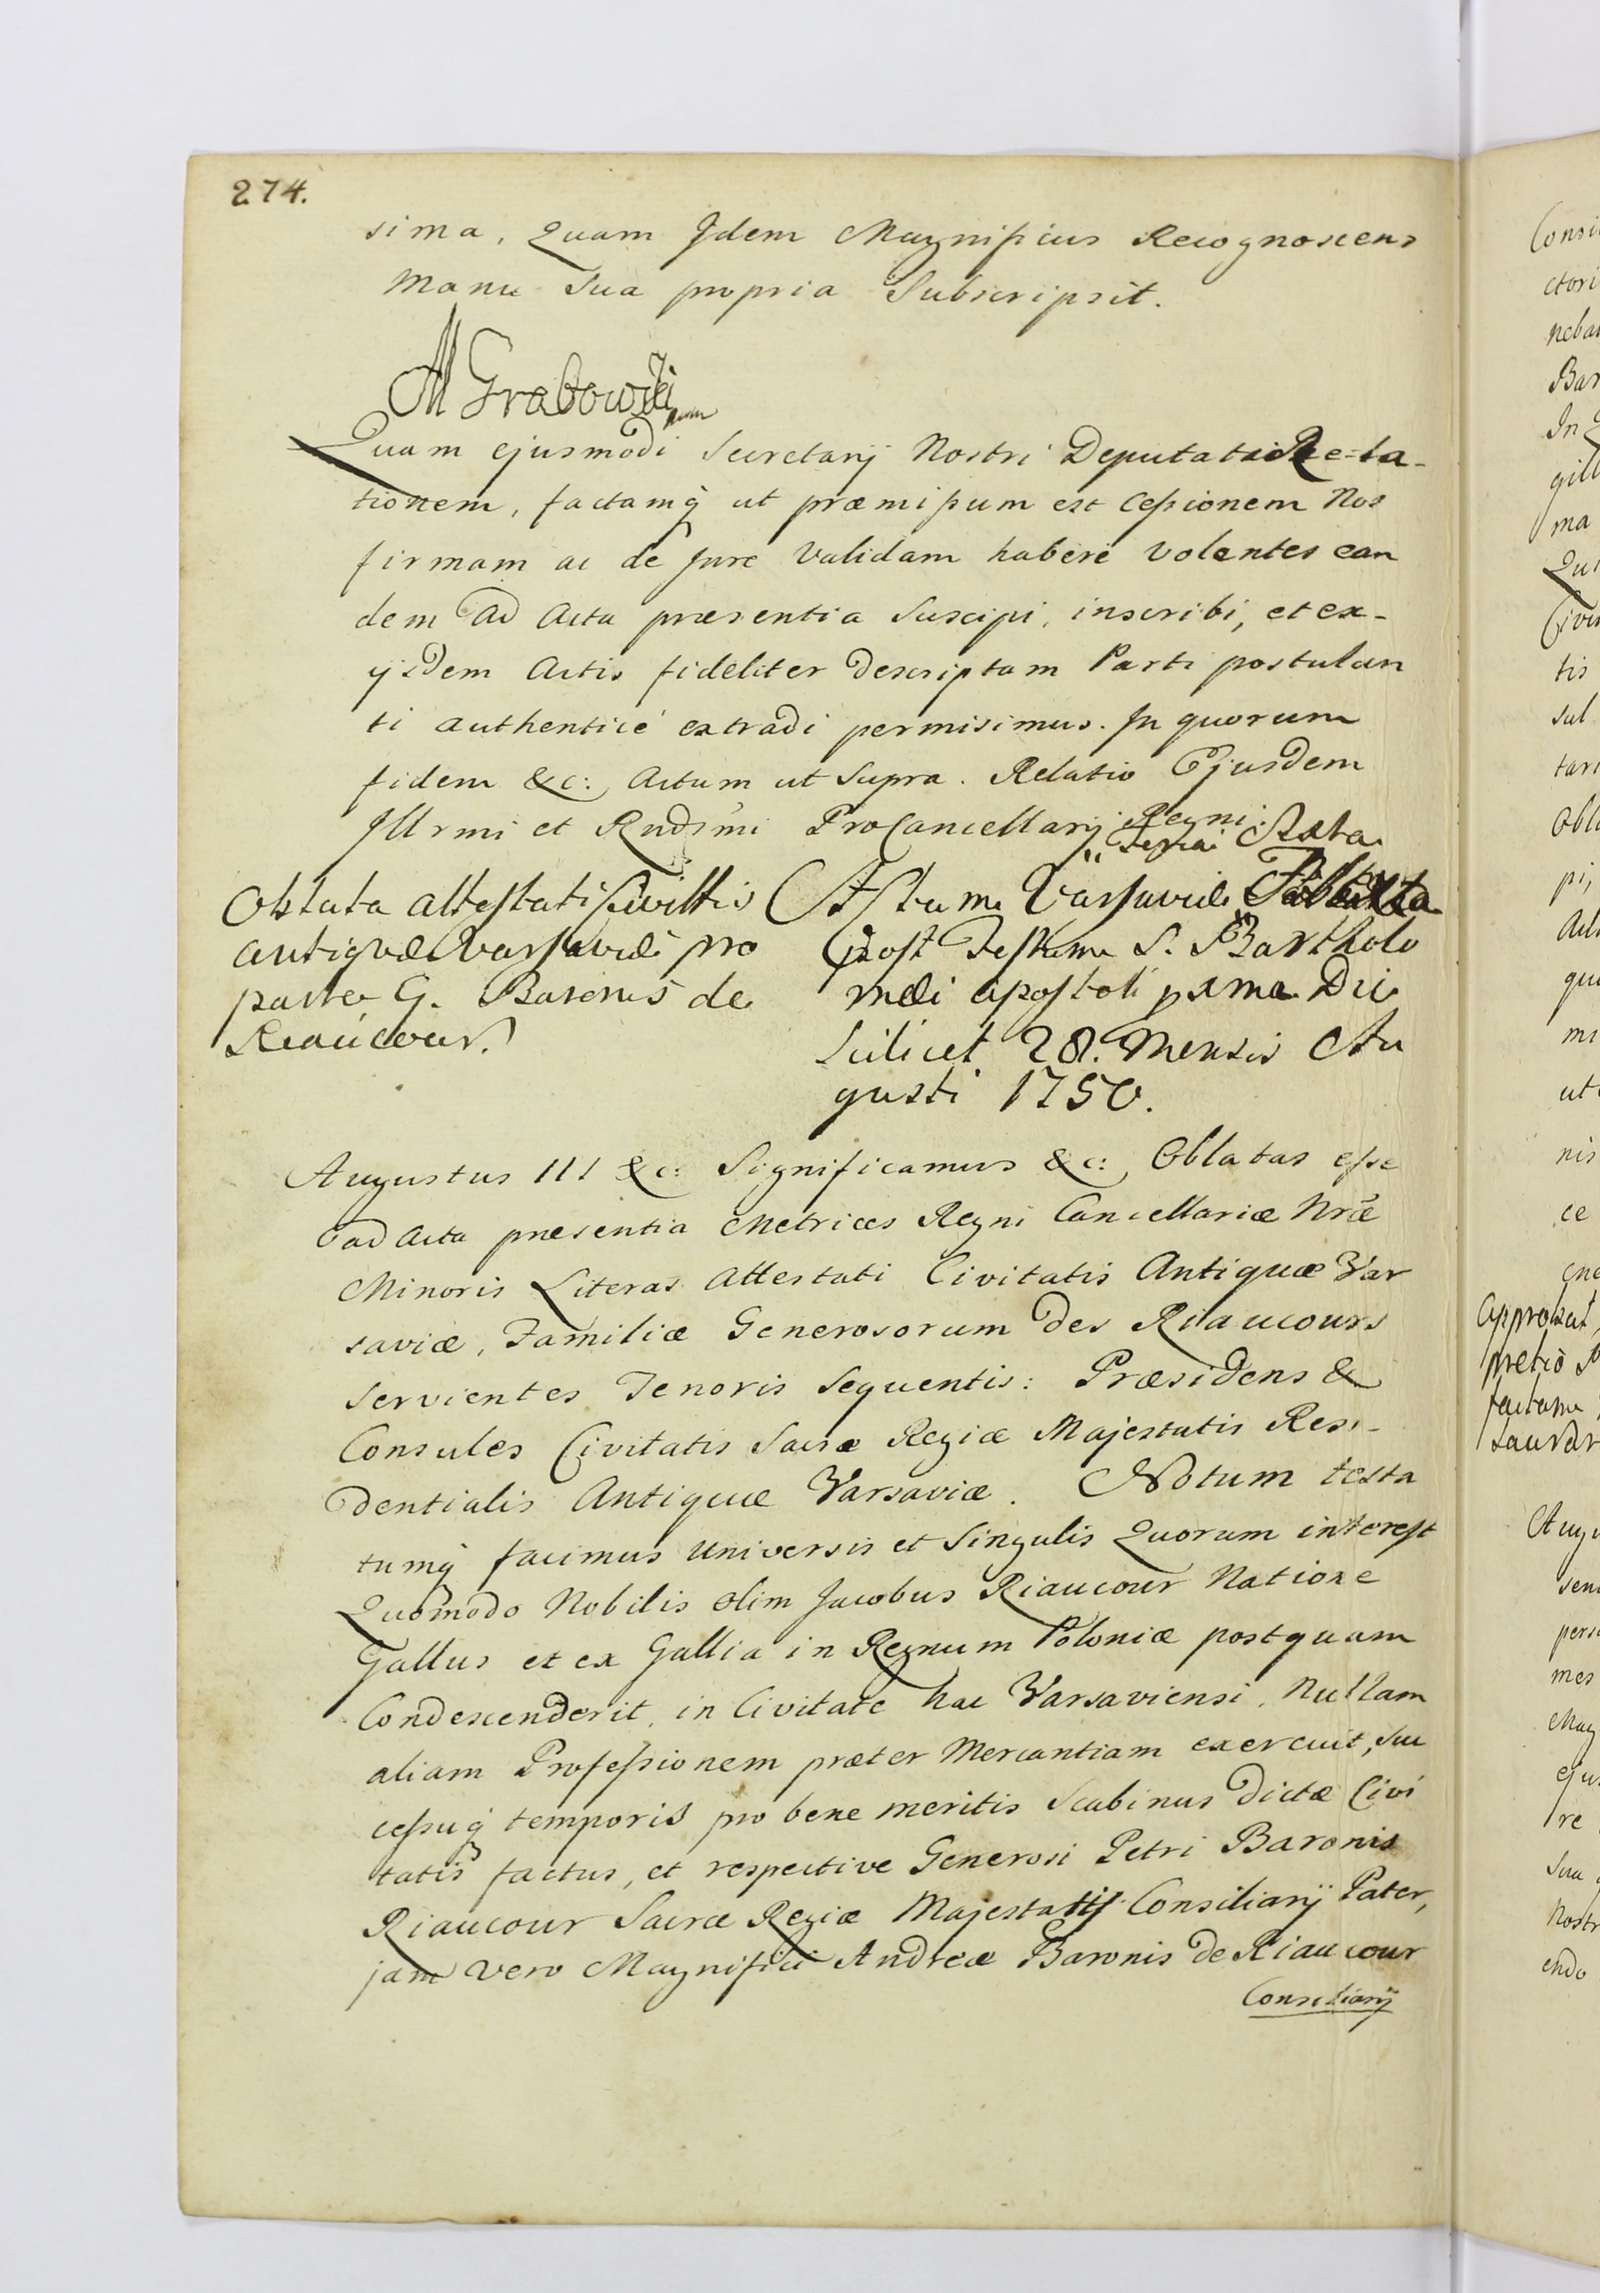 274.
sima, Quam Idem Magnificus Recognoscens
Manu Sua propria Subscripsit.
M Grabowski mm
Quam ejusmodi Secretarij Nostri Deputati Re=la-
tionem, factamq ut præmissum est Cessionem Nos
firmam ac de Jure Validam habere Volentes ean
dem Ad Acta præsentia Suscipi, inscribi, et ex-
ijsdem Actis fideliter Descriptam Parti postulan
ti authenticé extradi permisimus. In quorum
fidem &c: Actum ut Supra. Relatio Ejusdem
Illrmi et Rndsmi ProCancellarij Regni.
Oblata attestati Civittis
antiquæ Varsaviæ pro
parte G. Baronis de
Reaucour.
Feria Sexta
Actum Varsaviæ
post Festum S. Bartholo
mæi apostoli pxma Die
Scilicet 28. Mensis Au
gusti 1750.
Augustus III &c: Significamus &c: Oblatas esse
ad Acta præsentia Metrices Regni Cancellariæ Nræ
Minoris Literas Attestati Civitatis Antiquæ Var
saviæ, Familiæ Generosorum des Riaucours
servientes Tenoris Sequentis: Præsidens &
Consules Civitatis Sacræ Regiæ Majestatis Resi-
dentialis Antiquæ Varsaviæ. Notum testa
tumq facimus Universis et Singulis Quorum interest
Quomodo Nobilis olim Jacobus Riaucour Natione
Gallus et ex Gallia in Regnum Poloniæ postquam
Condescenderit, in Civitate hac Varsaviensi, Nullam
aliam Professionem præter Mercantiam exercuit, Suc
cessuq temporis pro bene meritis Scabinus Dictæ Civi
tatis factus, et respective Generosi Petri Baronis
Riaucour Sacræ Regiæ Majestatis Consiliarij Pater,
jam vero Magnifici Andreæ Baronis de Riaucour
Consiliarij